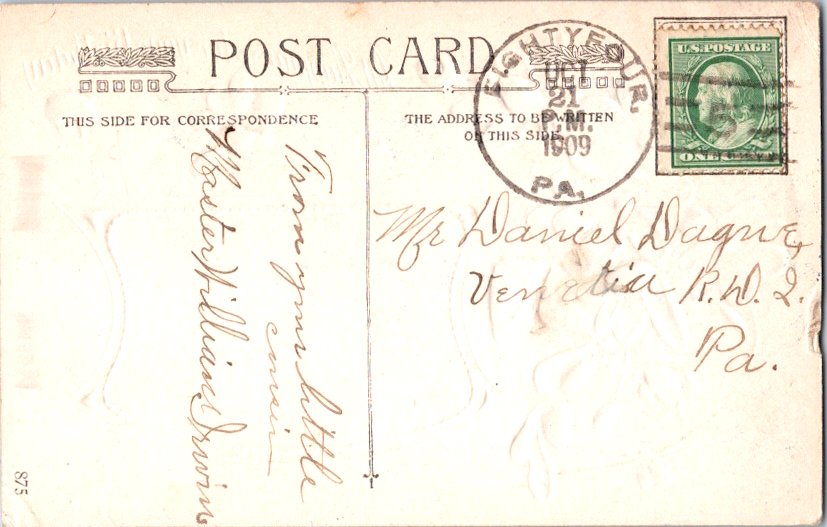 POST CARD
THIS SIDE FOR CORRESPONDENCE
THE ADDRESS TO BE WRITTEN
ON THIS SIDE
EIGHTYFOUR.
OCT
21
P.M.
1909
PA.
U.S. POSTAGE
ONE CENT
Mr Daniel Dague
Venetia R.D. 2.
Pa.
From your little
cousin
Master William Irwin
875